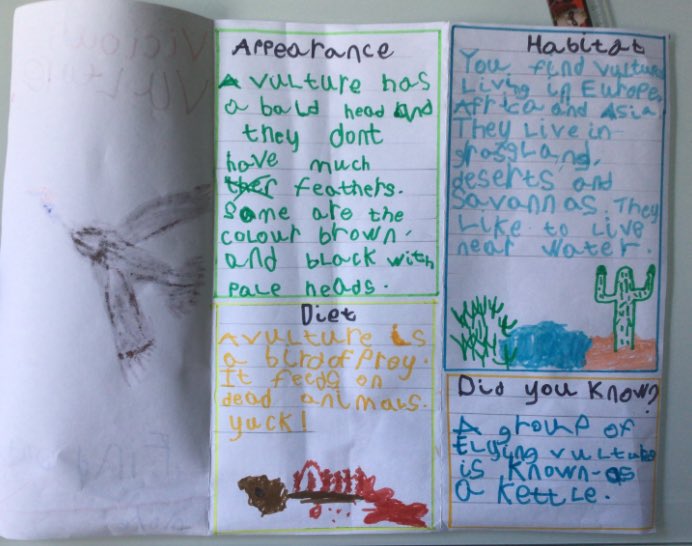 Appearance
A vulture has
a bald head and
they dont
have much
feathers.
Some are the
colour brown.
and black with
pale heads.
Diet
A vulture is
a bird of prey.
It feeds on
dead animals.
yuck!
Habitat
You find vultures
Living in Europe,
Africa and Asia.
They Live in
grassland,
deserts and
Savannas. They
Like to Live
near water.
Did you know?
A group of
Flying vultures
is known as
a kettle.